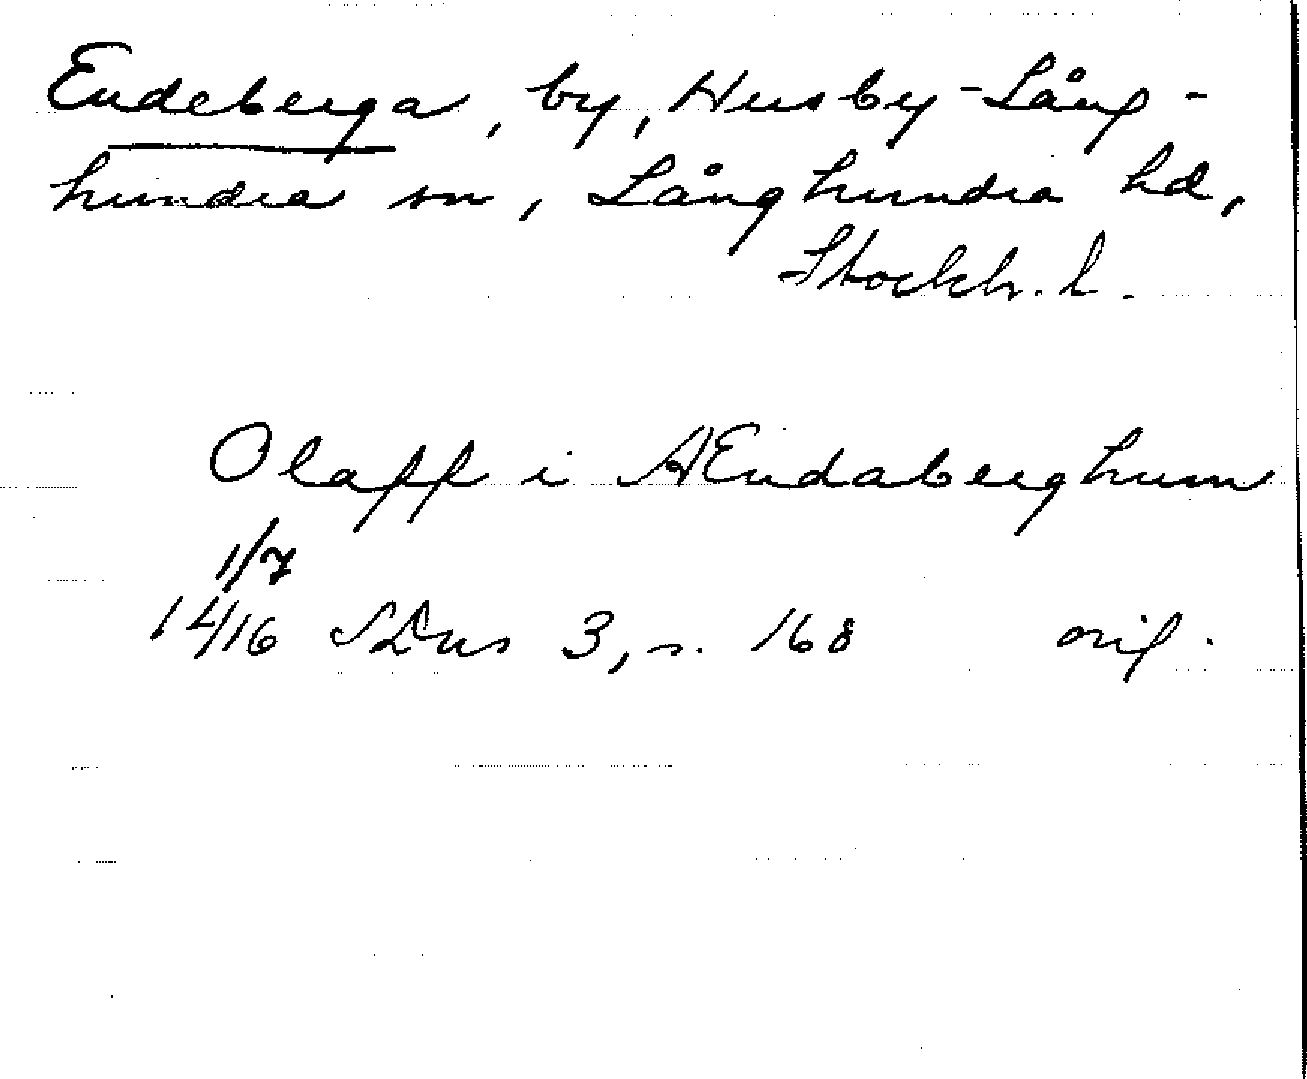 Endeberga, by, Husby-Lång-
hundra sn, Långhundra hd,
Stockh. l.
Olaff i Ændaberghum
1/7
1416 SDns 3, s. 168 orig.